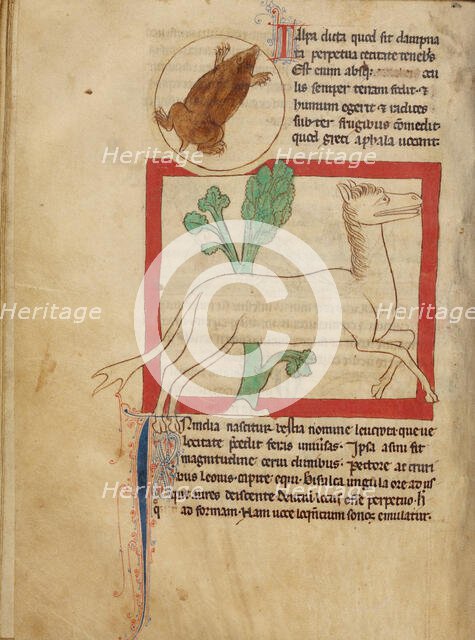 Talpa dicta quod sit dampna
ta perpetua cecitate teneb's
Est enim absq; ocu
lis semper terram fodit ⁊
humum egerit ⁊ radices
subter frugibus comedit
quod greci aphala uocant.
Heritage Heritage
Heritage Heritage Heritage
©
Heritage Heritage
India nascitur bestia nomine leucrota que ue
locitate precedit feras uniuersas. Ipsa asini fit
magnitudine cerui clunibus. Pectore ac cruri
bus leonis. capite equi. Bisulca ungula ore ad us
q; aures Dentium locus osse perpetuo. H
ad formam. Nam uoce loquentium sonos emulatur.